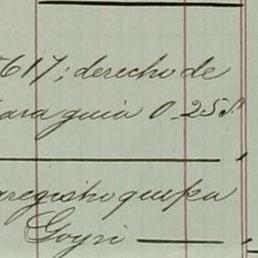 617; derecho de
para guia 0.25 $
registro que pa
Goyri